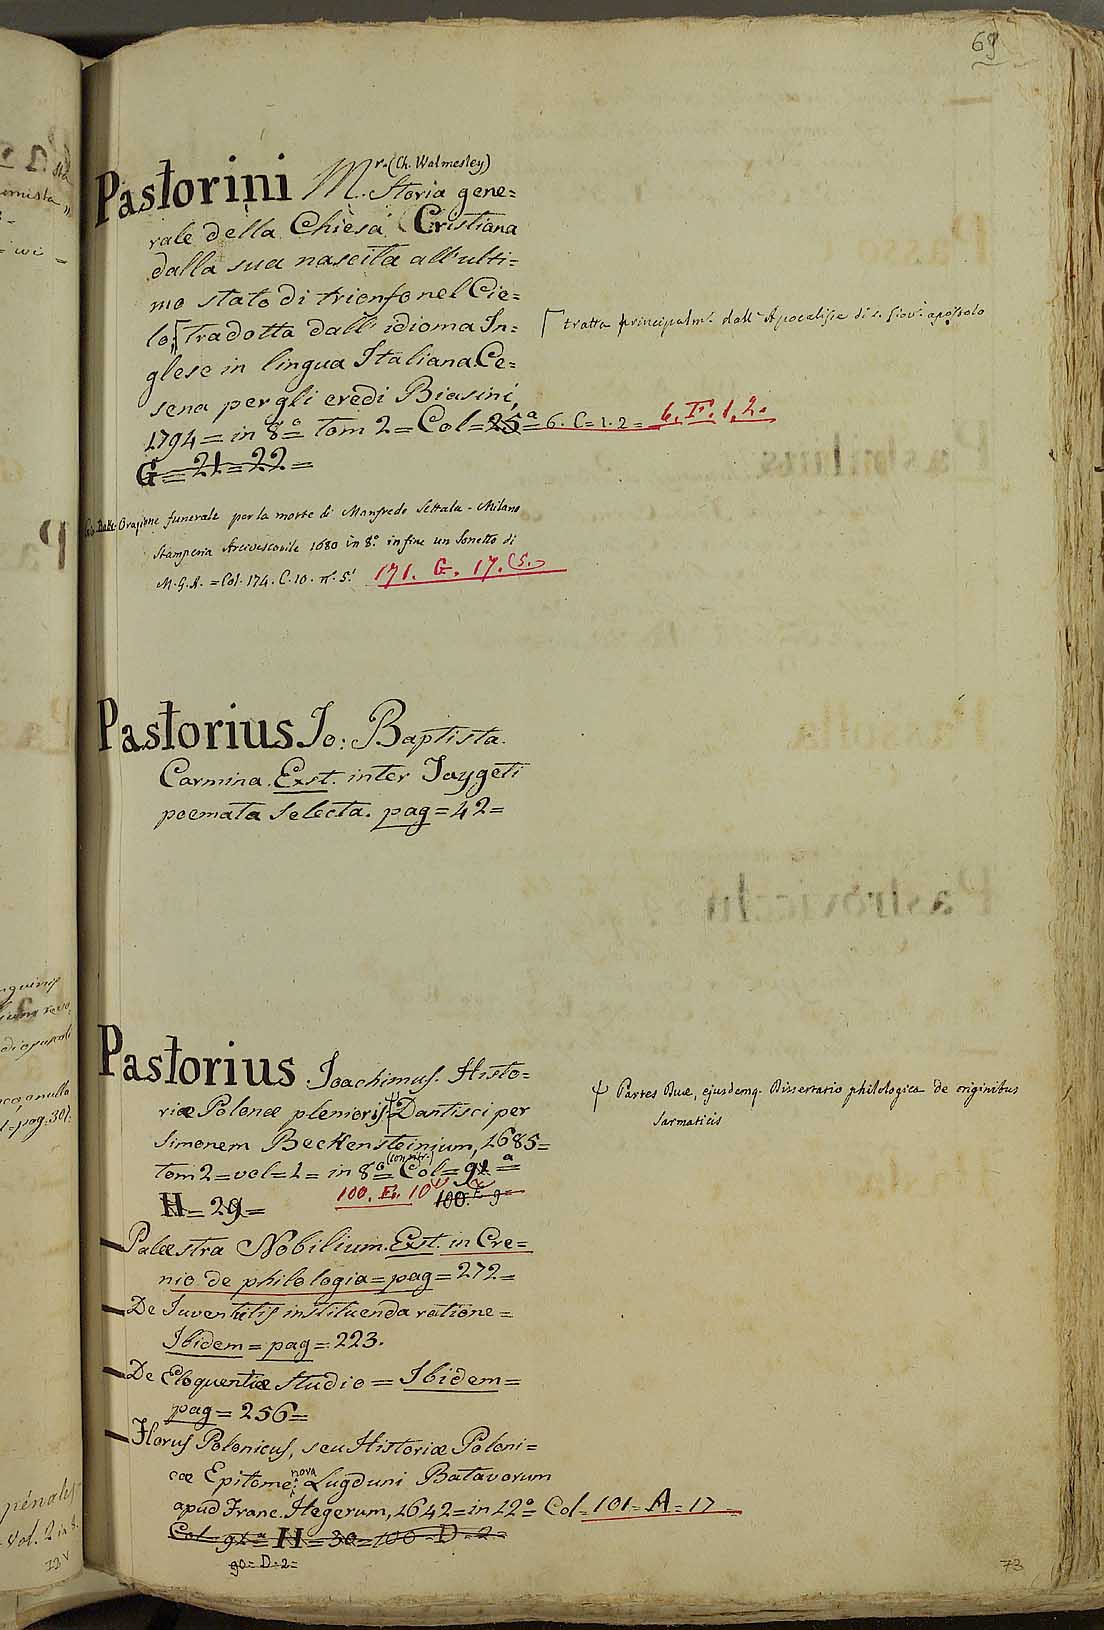 69
Pastorini Mr. (Ch. Walmesley) Storia gene=
rale della Chiesa Cristiana
dalla sua nascita all'ulti=
mo stato di trionfo nel Cie=
lo, Tradotta dall'idioma In=
glese in lingua Italiana Ce=
sena per gli eredi Biasini,
1794 = in 8º = Tom 2 = Col = 25ª = 6. C = 1. 2 = 6. F. 1. 2.
G = 21 = 22 =
tratta principalmᵉ. dall'Apocalisse di S. Giovⁱ. apostolo
Orazione funerale per la morte di Manfredo Settala - Milano
Stamperia Arcivescovile 1680 in 8º. in fine un Sonetto di
M. G. R. = Col. 174. C. 10. nº. 5. 171. G. 17. (5.)
Pastorius Jo: Baptista.
Carmina. Exst. inter Taygeti
poemata selecta. pag = 42 =
Pastorius Joachimus. Histo=
riæ Polonæ plenioris Dantisci per
Simonem Beckensteinium, 1685 =
tom 2 = vol = 1 = in 8º = Col = 91ª =
H = 29 = 100. E. 10 100. 9
Partes Duæ, ejusdemq. Dissertatio philologica de originibus
Sarmaticis
Palæstra Nobilium. Exst. in Cre=
nio de philologia = pag = 272 =
De Juventutis instituenda ratione =
Ibidem = pag = 223.
De Eloquentiæ studio = Ibidem =
pag = 256 =
Florus Polonicus, seu Historiæ Poloni=
cæ Epitome nova Lugduni Batavorum
apud Franc. Hegerum, 1642 = in 12º Col = 101 = A = 17
Col = 91ª = H = 30 = 100 = D = 2 =
90 = D. 2 =
73